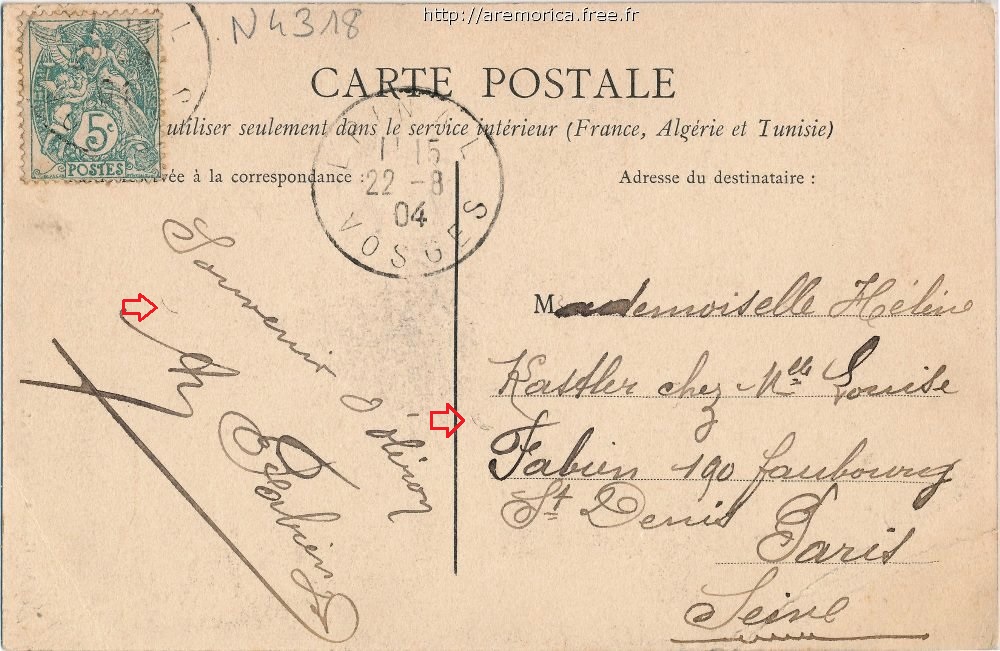 http://aremorica.free.fr
N4318
5c
POSTES
CARTE POSTALE
utiliser seulement dans le service intérieur (France, Algérie et Tunisie)
réservée à la correspondance :
Adresse du destinataire :
11 15
22 - 8
04
VOSGES
Souvenir
d'oléron
Mademoiselle Hélène
Kastler chez Melle Louise
Fabien 190 faubourg
St Denis Paris
Seine